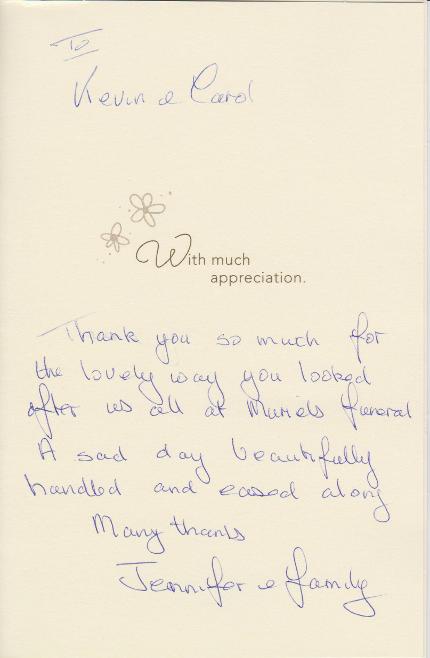 To
Kevin & Carol
With much
appreciation.
Thank you so much for
the lovely way you looked
after us all at Muriels funeral
A sad day beautifully
handled and eased along
Many thanks
Jennifer & family